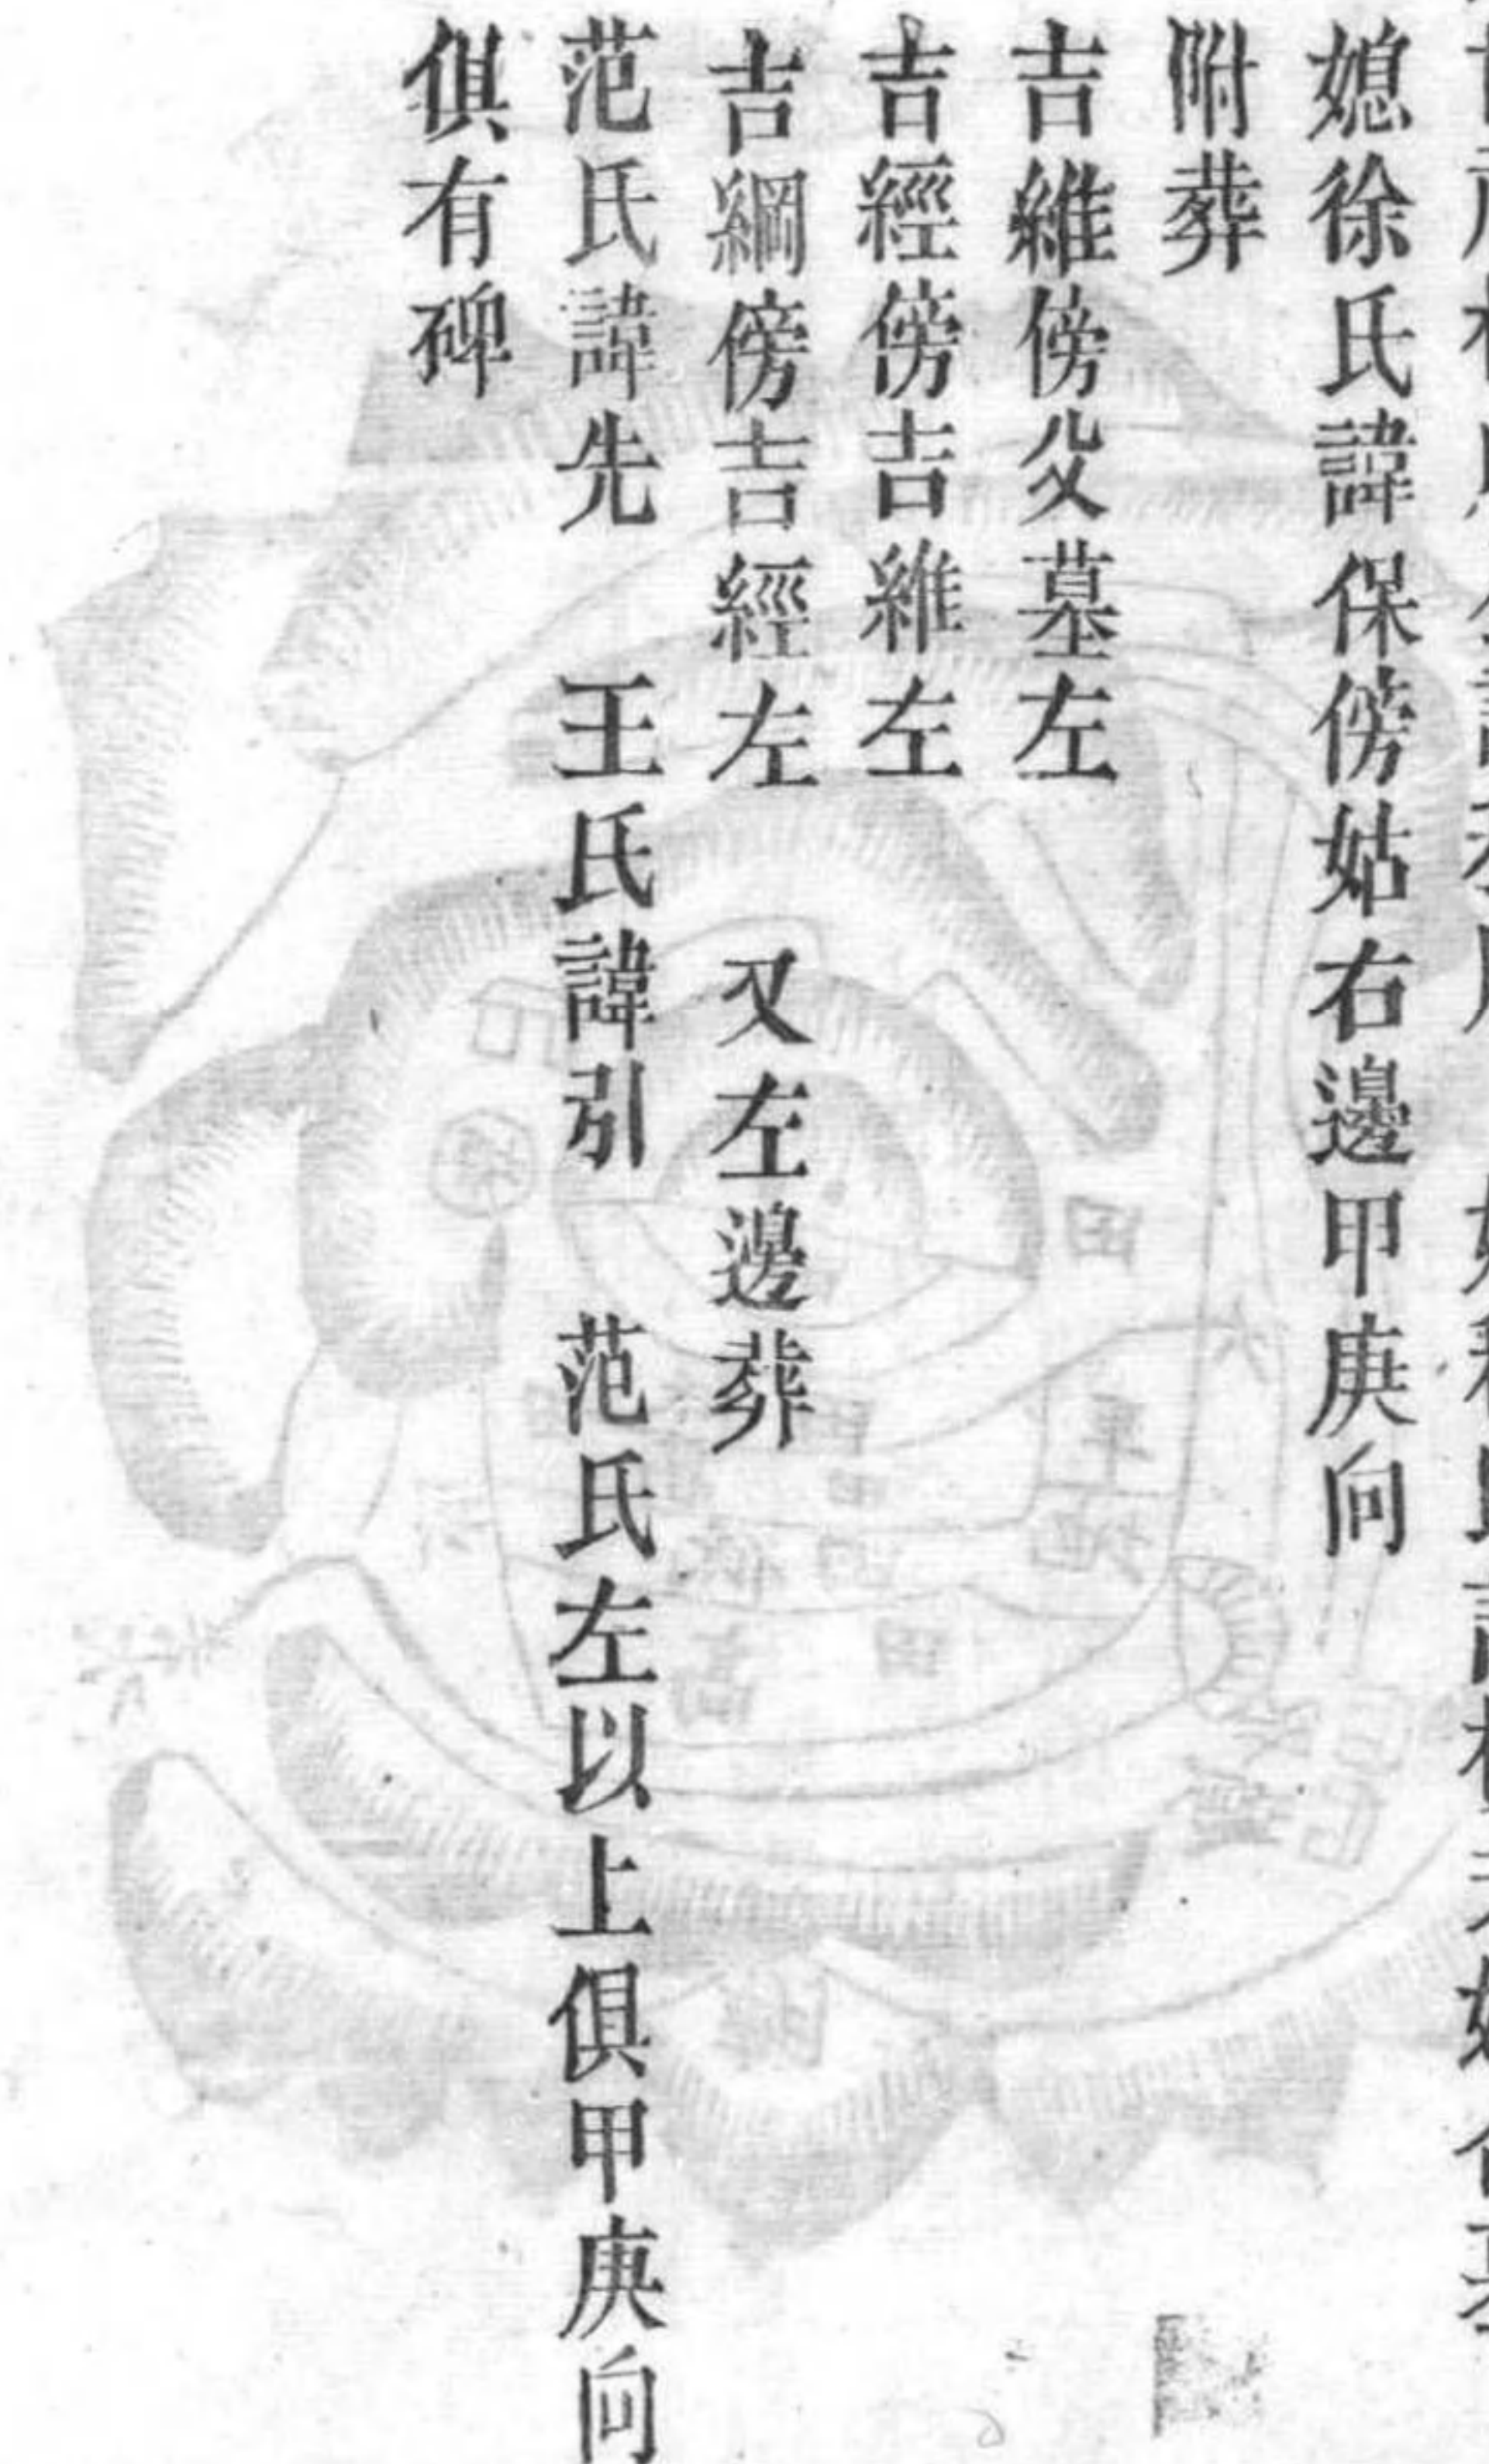 媳徐氏諱保傍姑右邊甲庚向
附葬
吉維傍父墓左
吉經傍吉維左
吉綱傍吉經左　又左邊葬
范氏諱先　王氏諱引　范氏左以上俱甲庚向
俱有碑